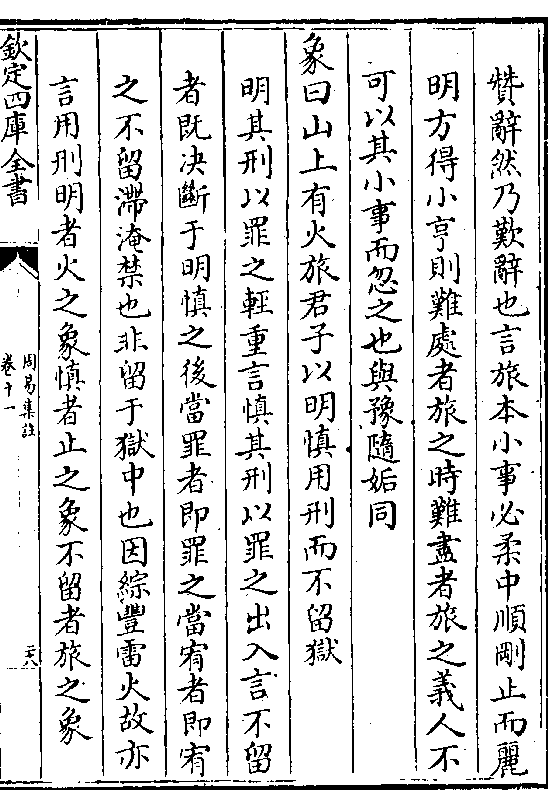 贊辭然乃歎辭也言旅本小事必柔中順剛止而麗
明方得小亨則難處者旅之時難盡者旅之義人不
可以其小事而忽之也與豫隨姤同
象曰山上有火旅君子以明慎用刑而不留獄
明其刑以罪之輕重言慎其刑以罪之出入言不留
者既决斷于明慎之後當罪者即罪之當宥者即宥
之不留滯淹禁也非留于獄中也因綜豐雷火故亦
言用刑明者火之象慎者止之象不留者旅之象
欽定四庫全書
周易集註
卷十一
二十八